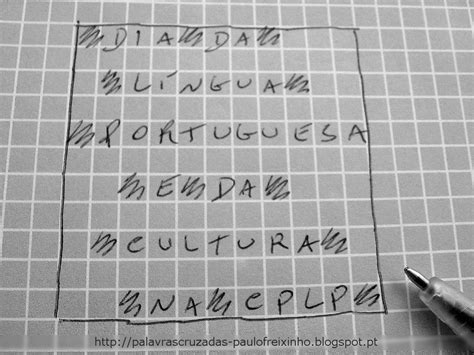 DIA DA
LÍNGUA
PORTUGUESA
E DA
CULTURA
NA CPLP
http://palavrascruzadas-paulofreixinho.blogspot.pt